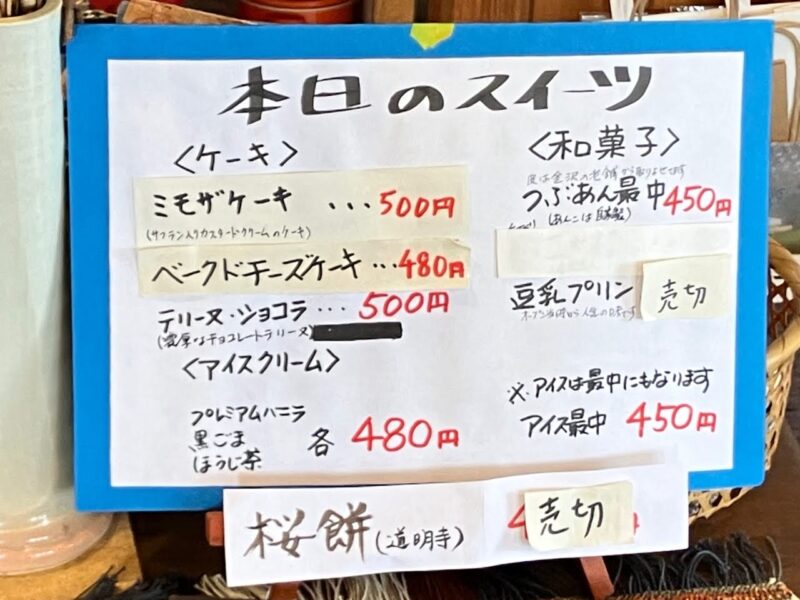 本日のスイーツ
〈ケーキ〉
ミモザケーキ ・・・500円
(サフラン入りカスタードクリームのケーキ)
ベークドチーズケーキ・・・480円
テリーヌ・ショコラ・・・500円
(濃厚なチョコレートテリーヌ)
〈アイスクリーム〉
プレミアムバニラ
黒ごま
ほうじ茶
各 480円
〈和菓子〉
皮は金沢の老舗から取りよせてます
つぶあん最中 450円
(あんこは自家製)
豆乳プリン 売切
※アイスは最中にもなります
アイス最中 450円
桜餅(道明寺) 売切